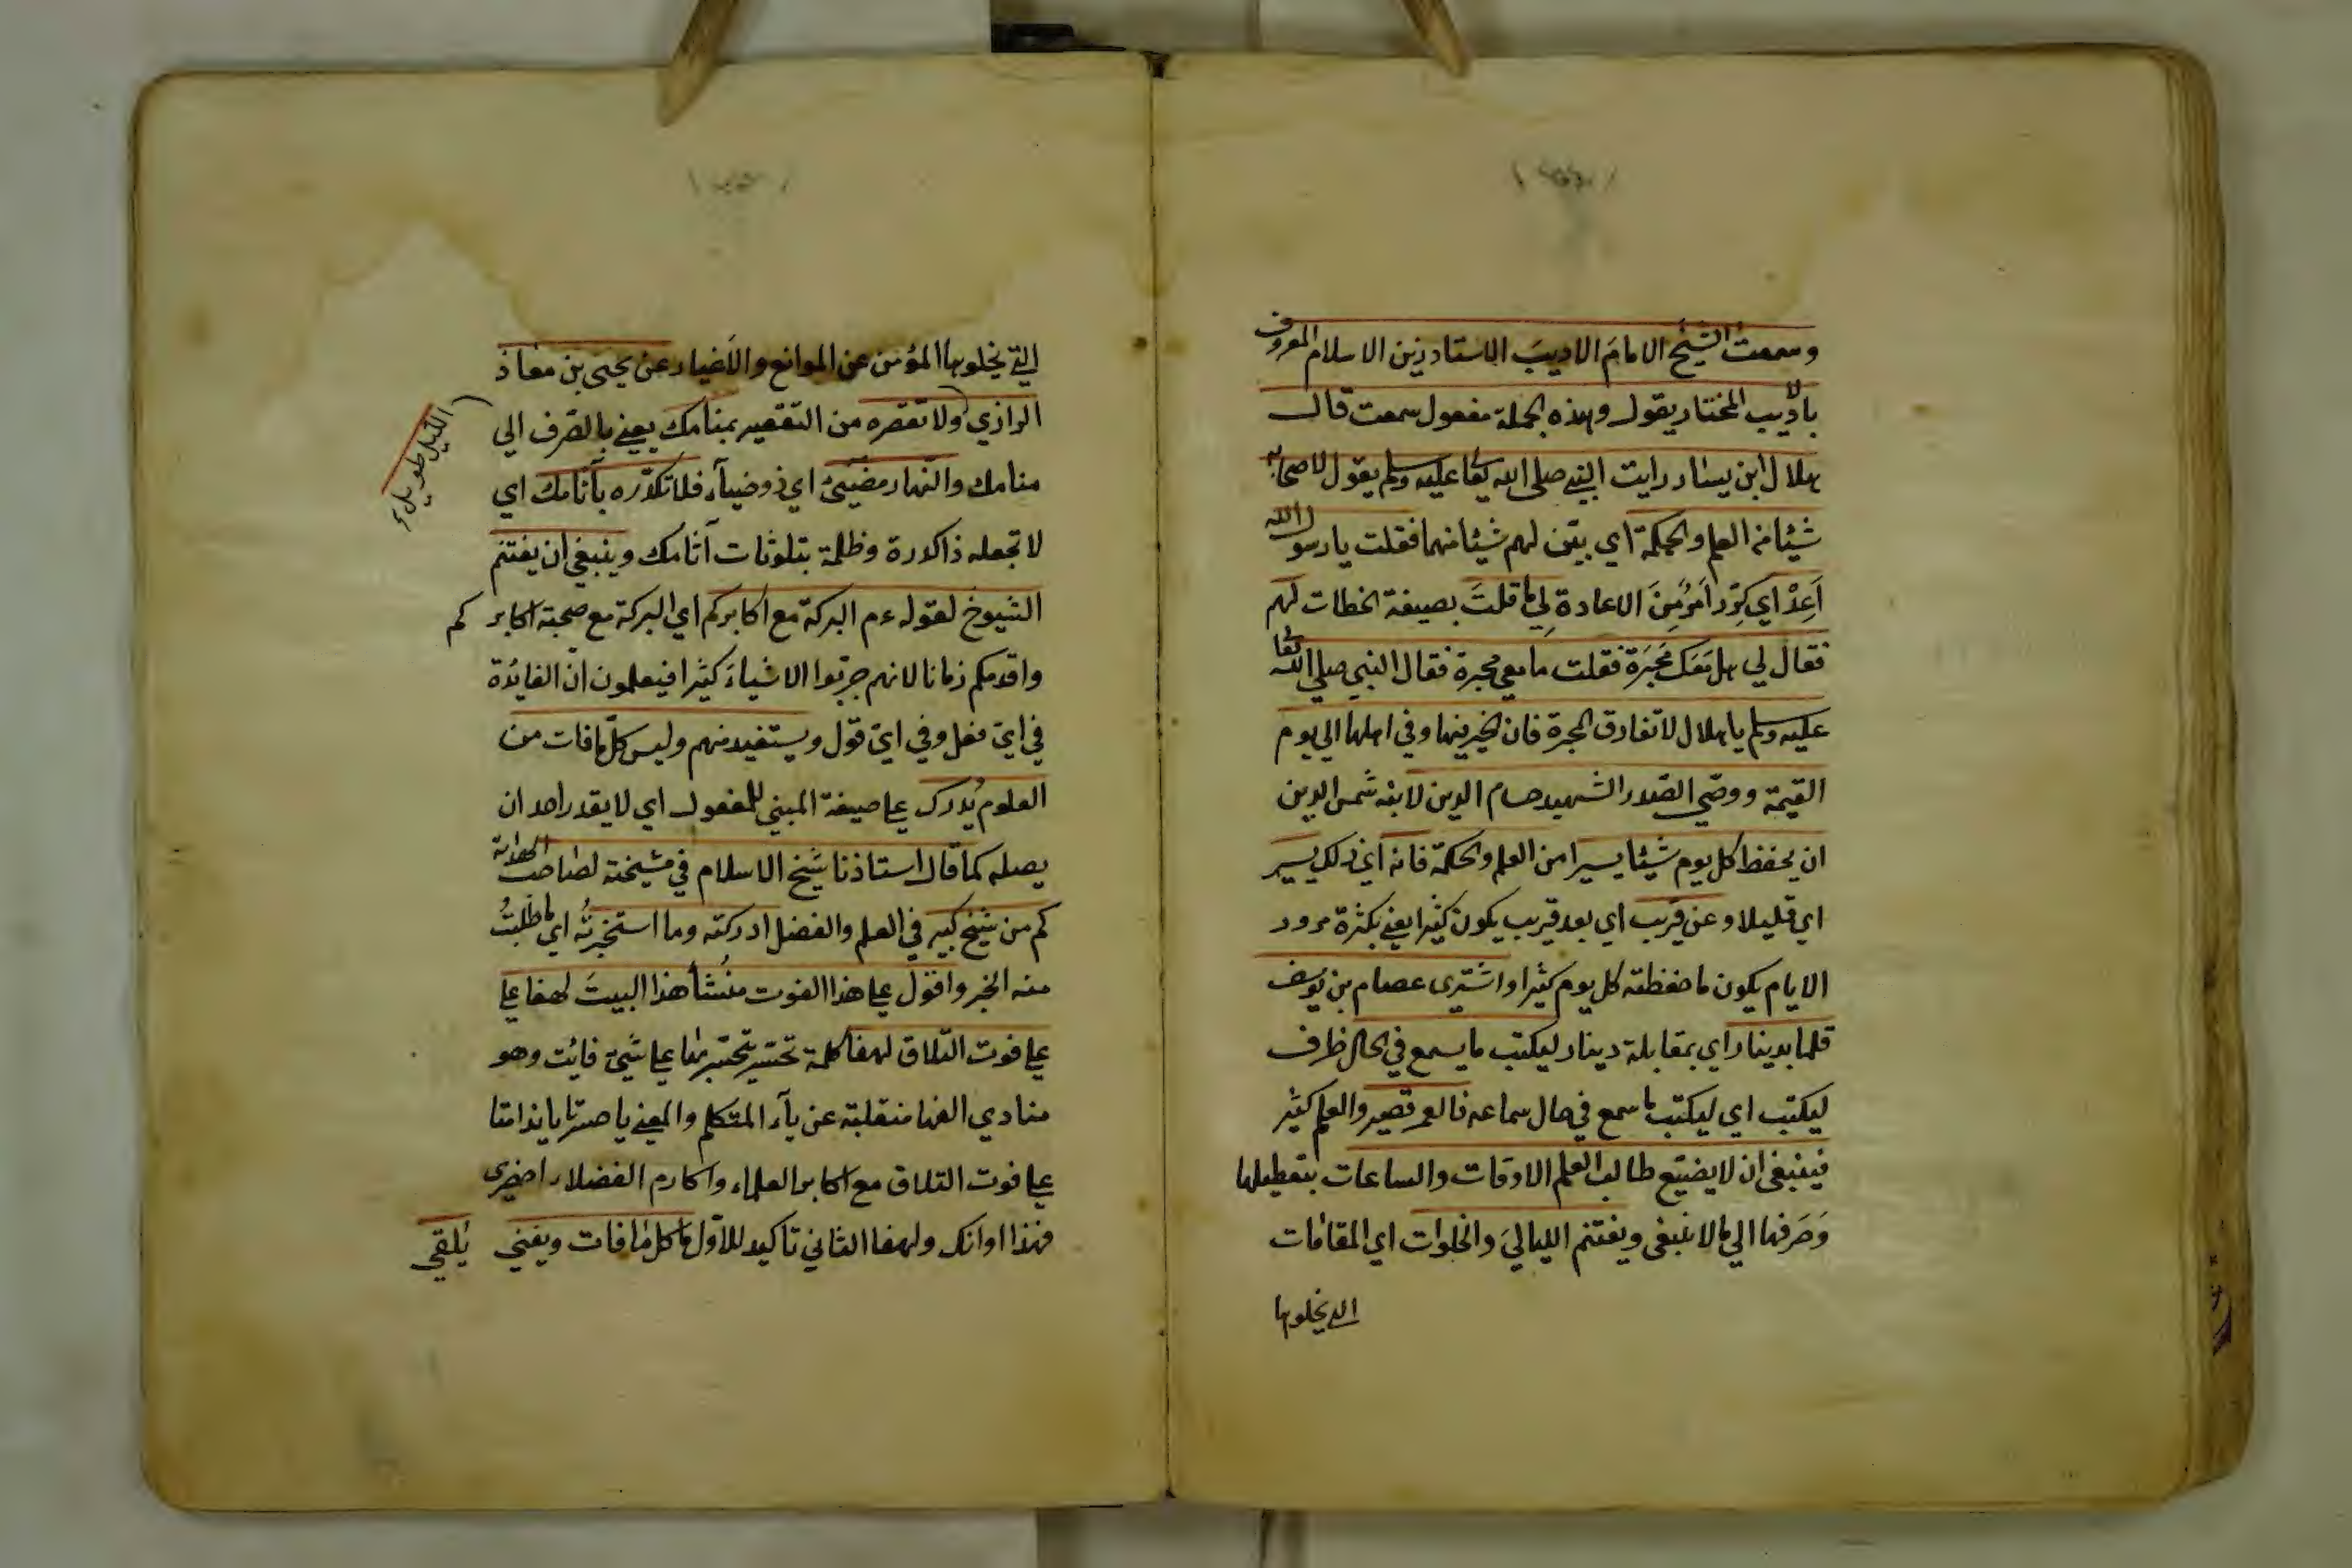 وسمعت الشيخ الامام الاديب الاستاد زين الاسلام المعروف
بالاديب المختار يقول وهذه الجملة مفعول سمعت قال
هلال ابن يسار رايت النبي صلى الله تعا عليه وسلم يقول لاصحابه
شيئا من العلم والحكمة اي يبين لهم شيئا منهما فقلت يا رسول الله
اَعِدْ اي كرّر اَمرٌ مِنَ الاعادة لِي ما قلتَ بصيغة الخطاب لهم
فقال لي هل معك محبَرَة فقلت ما معي محبرة فقال النبي صلي الله تعا
عليه وسلم يا هلال لا تفارق المحبرة فان الخير فيها وفي اهلها الي يوم
القيمة ووصّي الصّدر الشهيد حسام الدين لابنه شمس الدين
ان يحفظ كل يوم شيئا يسيرا من العلم والحكمة فانه اي ذلك يسير
اي قليلا وعن قريب اي بعد قريب يكون كثيرا يعني بكثرة مرور
الايام يكون ما حفظته كل يوم كثيرا واشترى عصام بن يوسف
قلما بدينار اي بمقابلة دينار ليكتب ما يسمع في الحال ظرف
ليكتب اي ليكتب ما سمع في حال سماعه فالعمر قصير والعلم كثير
فينبغي ان لا يضيّع طالب العلم الاوقات والساعات بتعطيلها
وَصَرفها الي ما لا ينبغي ويغتنم الليالي والخلوات اي المقامات
التي يخلو بها
التي يخلو بها المؤمن عن الموانع والاَغيار عن يحيى بن معاذ
الرازي ولا تقصره من التقصير بمنامك يعني بالصّرف الي
الليل طويل
منامك والنهار مضيئ اي ذو ضياء فلا تكدّره بآثامك اي
لا تجعله ذا كدرة وظلمة بتلوثات آثامك وينبغي ان يغتنم
الشيوخ لقوله ءم البركة مع اكابركم اي البركة مع صحبة اكابركم
واقدمكم زمانا لانهم جرّبوا الاشياءَ كثيرا فيعلمون انّ الفايدة
في ايّ فعل وفي ايّ قول ويستفيد منهم وليس كلّ ما فات من
العلوم يُدرك علي صيغة المبني للمفعول اي لا يقدر احد ان
يصله كما قال استاذنا شيخ الاسلام في مشيخته لصاحب الهداية
كم من شيخ كبير في العلم والفضل ادركته وما استخبرتُه اي ما طلبتُ
منه الخبر واقول علي هذا الفوت منشأ هذا البيتَ لهفا علي
علي فوت التلاق لهفا كلمة تحسّر يتحسّر بها علي شيئ فائت وهو
منادي الفها منقلبة عن ياء المتكلم والمعني يا حسرتا يا ندامتا
علي فوت التلاق مع اكابر العلماء واكارم الفضلاء احضري
فهذا اوانك ولهفا الثاني تاكيد للاوّل ما كل ما فات ويفني
يُلقي